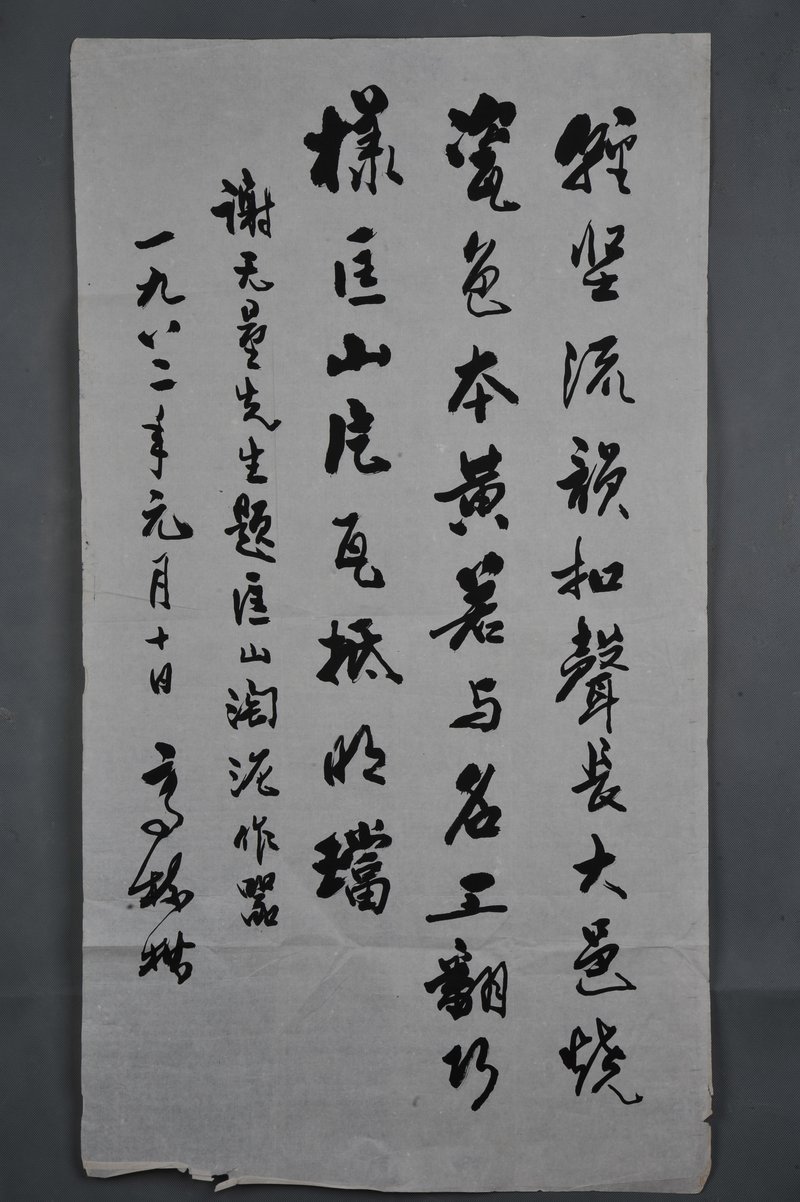 轻坚流韻扣聲長大邑烧
瓷色本黄若与名工翻巧
樣匡山片瓦抵明璫
谢无量先生题匡山淘泥作器
一九八二年元月十日 高